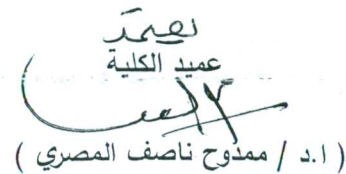 يعتمد
عميد الكلية
( ا.د / ممدوح ناصف المصري )